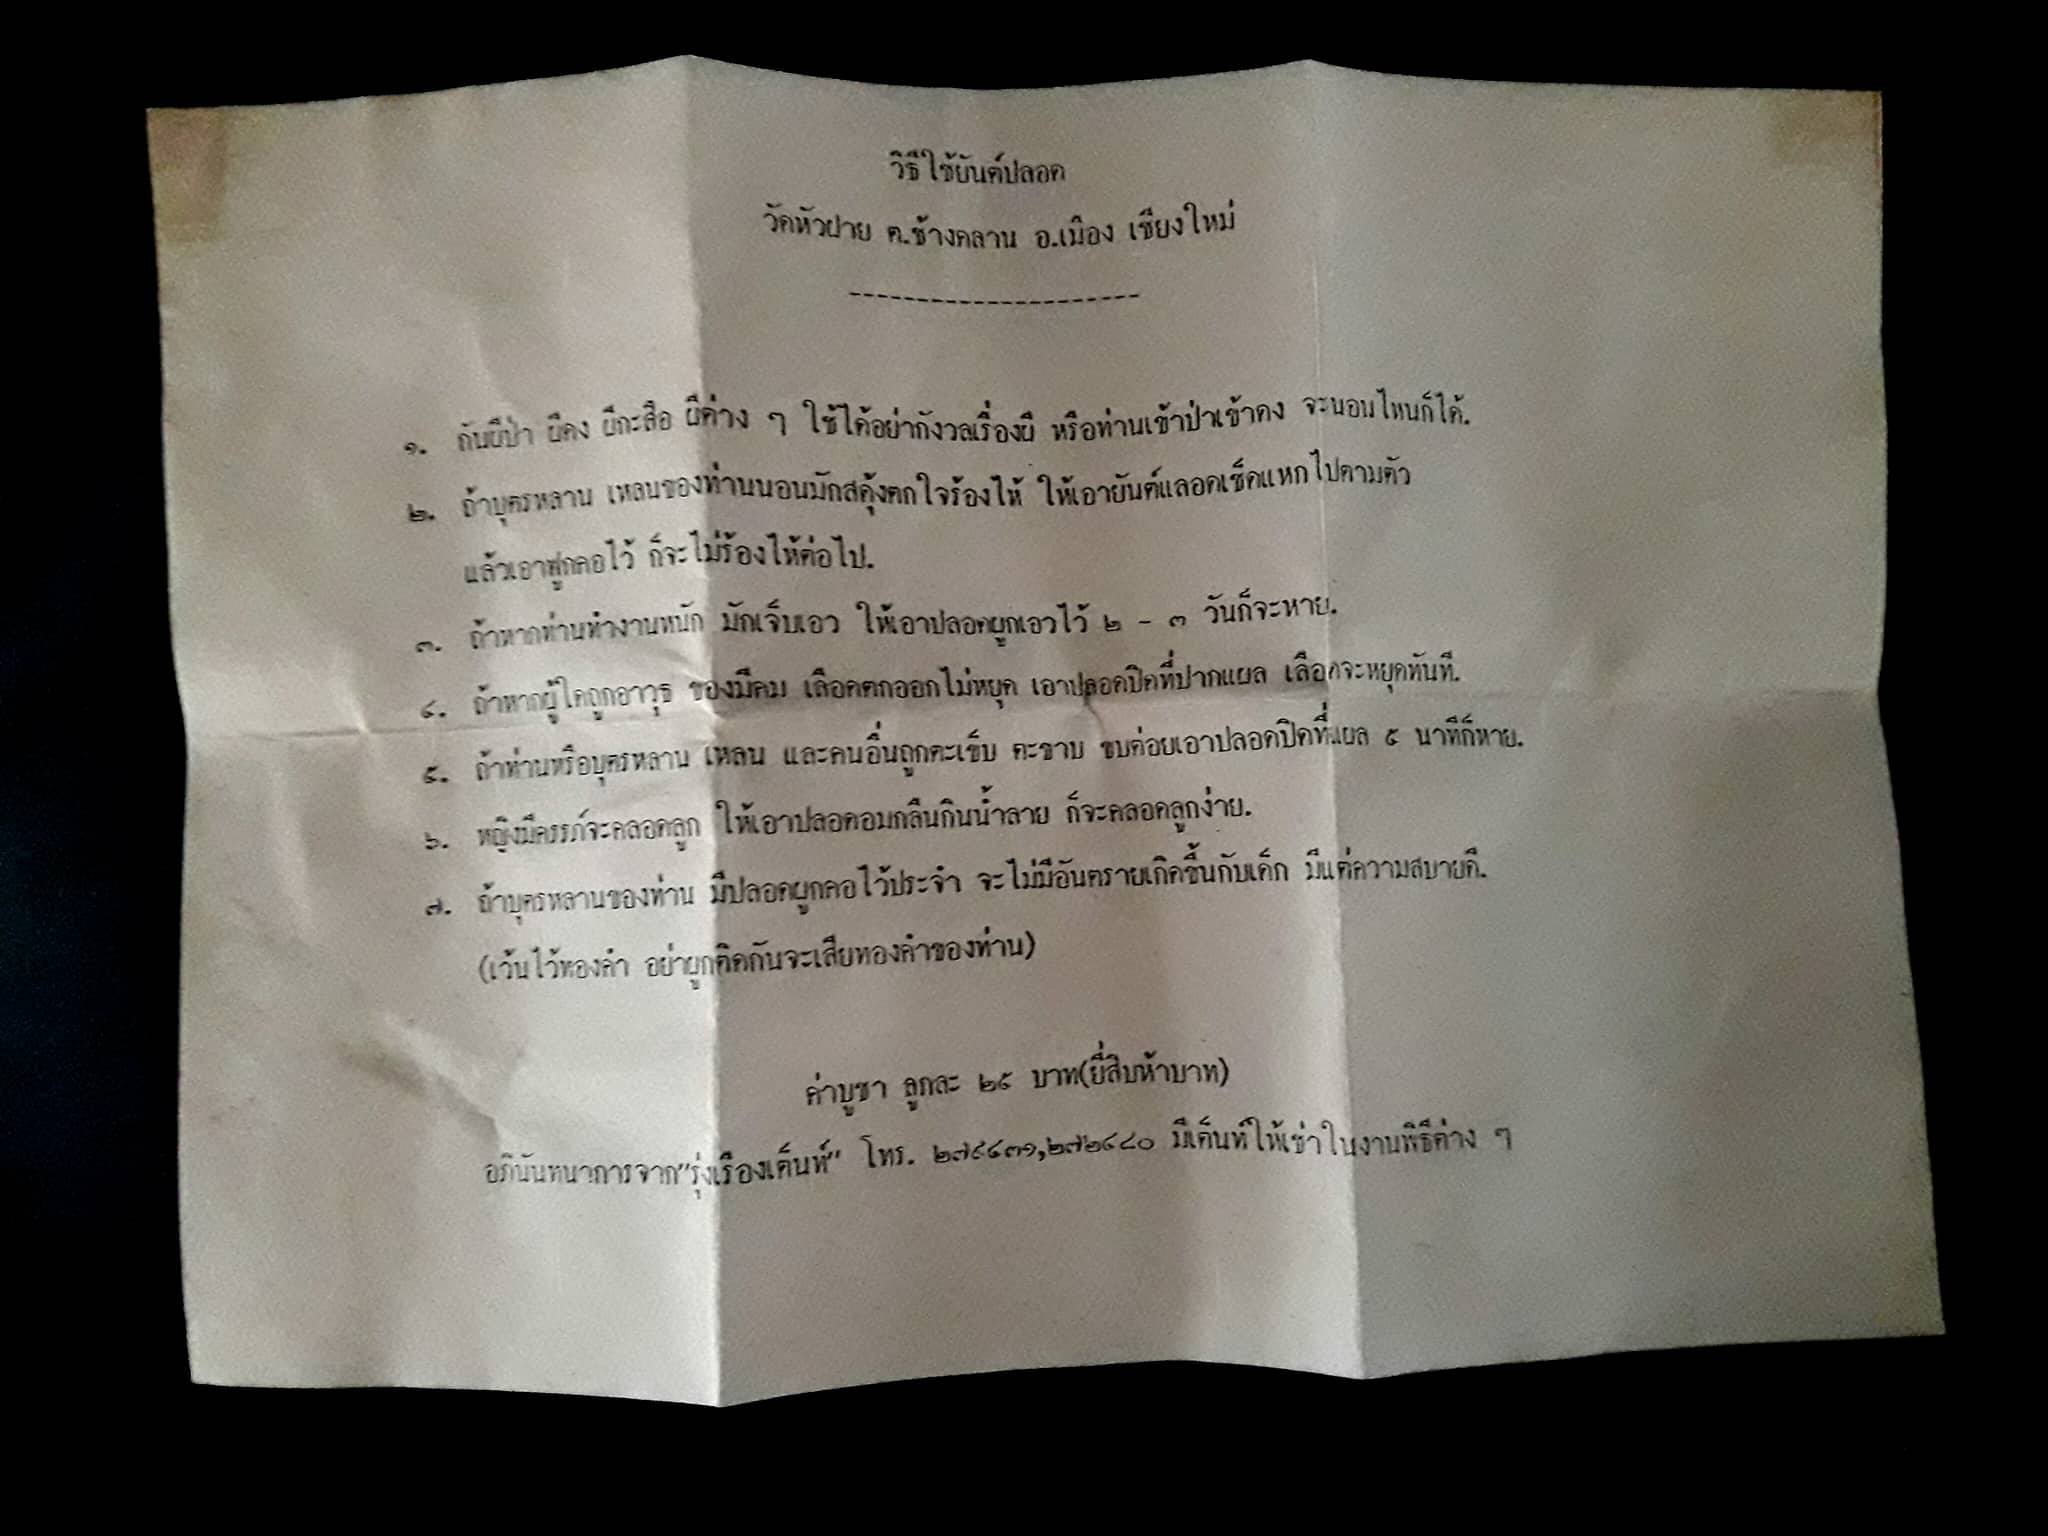 วิธีใช้ยันต์ปลอด
วัดหัวฝาย ต.ช้างคลาน อ.เมือง เชียงใหม่
---------------------
๑. กันผีป่า ผีดง ผีกะสือ ผีต่าง ๆ ใช้ได้อย่ากังวลเรื่องผี หรือท่านเข้าป่าเข้าดง จะนอนไหนก็ได้.
๒. ถ้าบุตรหลาน เหลนของท่านนอนมักสดุ้งตกใจร้องไห้ ให้เอายันต์แลอดเช็ดแหกไปตามตัว
แล้วเอาผูกคอไว้ ก็จะไม่ร้องไห้ต่อไป.
๓. ถ้าหากท่านทำงานหนัก มักเจ็บเอว ให้เอาปลอดผูกเอวไว้ ๒ - ๓ วันก็จะหาย.
๔. ถ้าหากผู้ใดถูกอาวุธ ของมีคม เลือดตกออกไม่หยุด เอาปลอดปิดที่ปากแผล เลือดจะหยุดทันที.
๕. ถ้าท่านหรือบุตรหลาน เหลน และคนอื่นถูกตะเข็บ ตะขาบ ขบต่อยเอาปลอดปิดที่แผล ๕ นาทีก็หาย.
๖. หญิงมีครรภ์จะคลอดลูก ให้เอาปลอดอมกลืนกินน้ำลาย ก็จะคลอดลูกง่าย.
๗. ถ้าบุตรหลานของท่าน มีปลอดผูกคอไว้ประจำ จะไม่มีอันตรายเกิดขึ้นกับเด็ก มีแต่ความสบายดี.
(เว้นไว้ทองคำ อย่าผูกติดกันจะเสียทองคำของท่าน)
ค่าบูชา ลูกละ ๒๕ บาท(ยี่สิบห้าบาท)
อภินันทนาการจาก"รุ่งเรืองเต็นท์" โทร. ๒๗๕๔๓๑,๒๗๒๔๘๐ มีเต็นท์ให้เช่าในงานพิธีต่าง ๆ